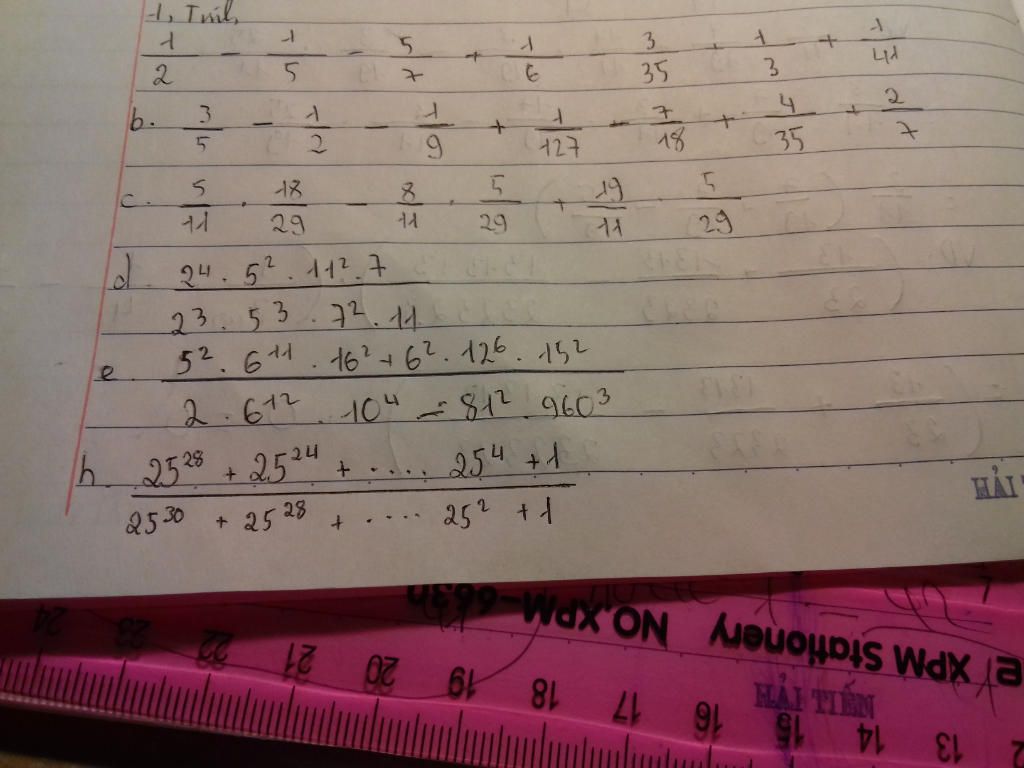 1, Tính,
1/2 - 1/5 - 5/7 + 1/6 - 3/35 + 1/3 + 1/41
b. 3/5 - 1/2 - 1/9 + 1/127 - 7/18 + 4/35 + 2/7
c. 5/11 . 18/29 - 8/11 . 5/29 + 19/11 . 5/29
d. 2⁴ . 5² . 11² . 7 / 2³ . 5³ . 7² . 11
e. 5² . 6¹¹ . 16² + 6² . 12⁶ . 15² / 2 . 6¹² . 10⁴ - 81² . 960³
h. 25²⁸ + 25²⁴ + ..... 25⁴ + 1 / 25³⁰ + 25²⁸ + ..... 25² + 1
HẢI T
NO.XPM-663h
XPM Stationery
HẢI TIẾN
24 23 22 21 20 19 18 17 16 15 14 13